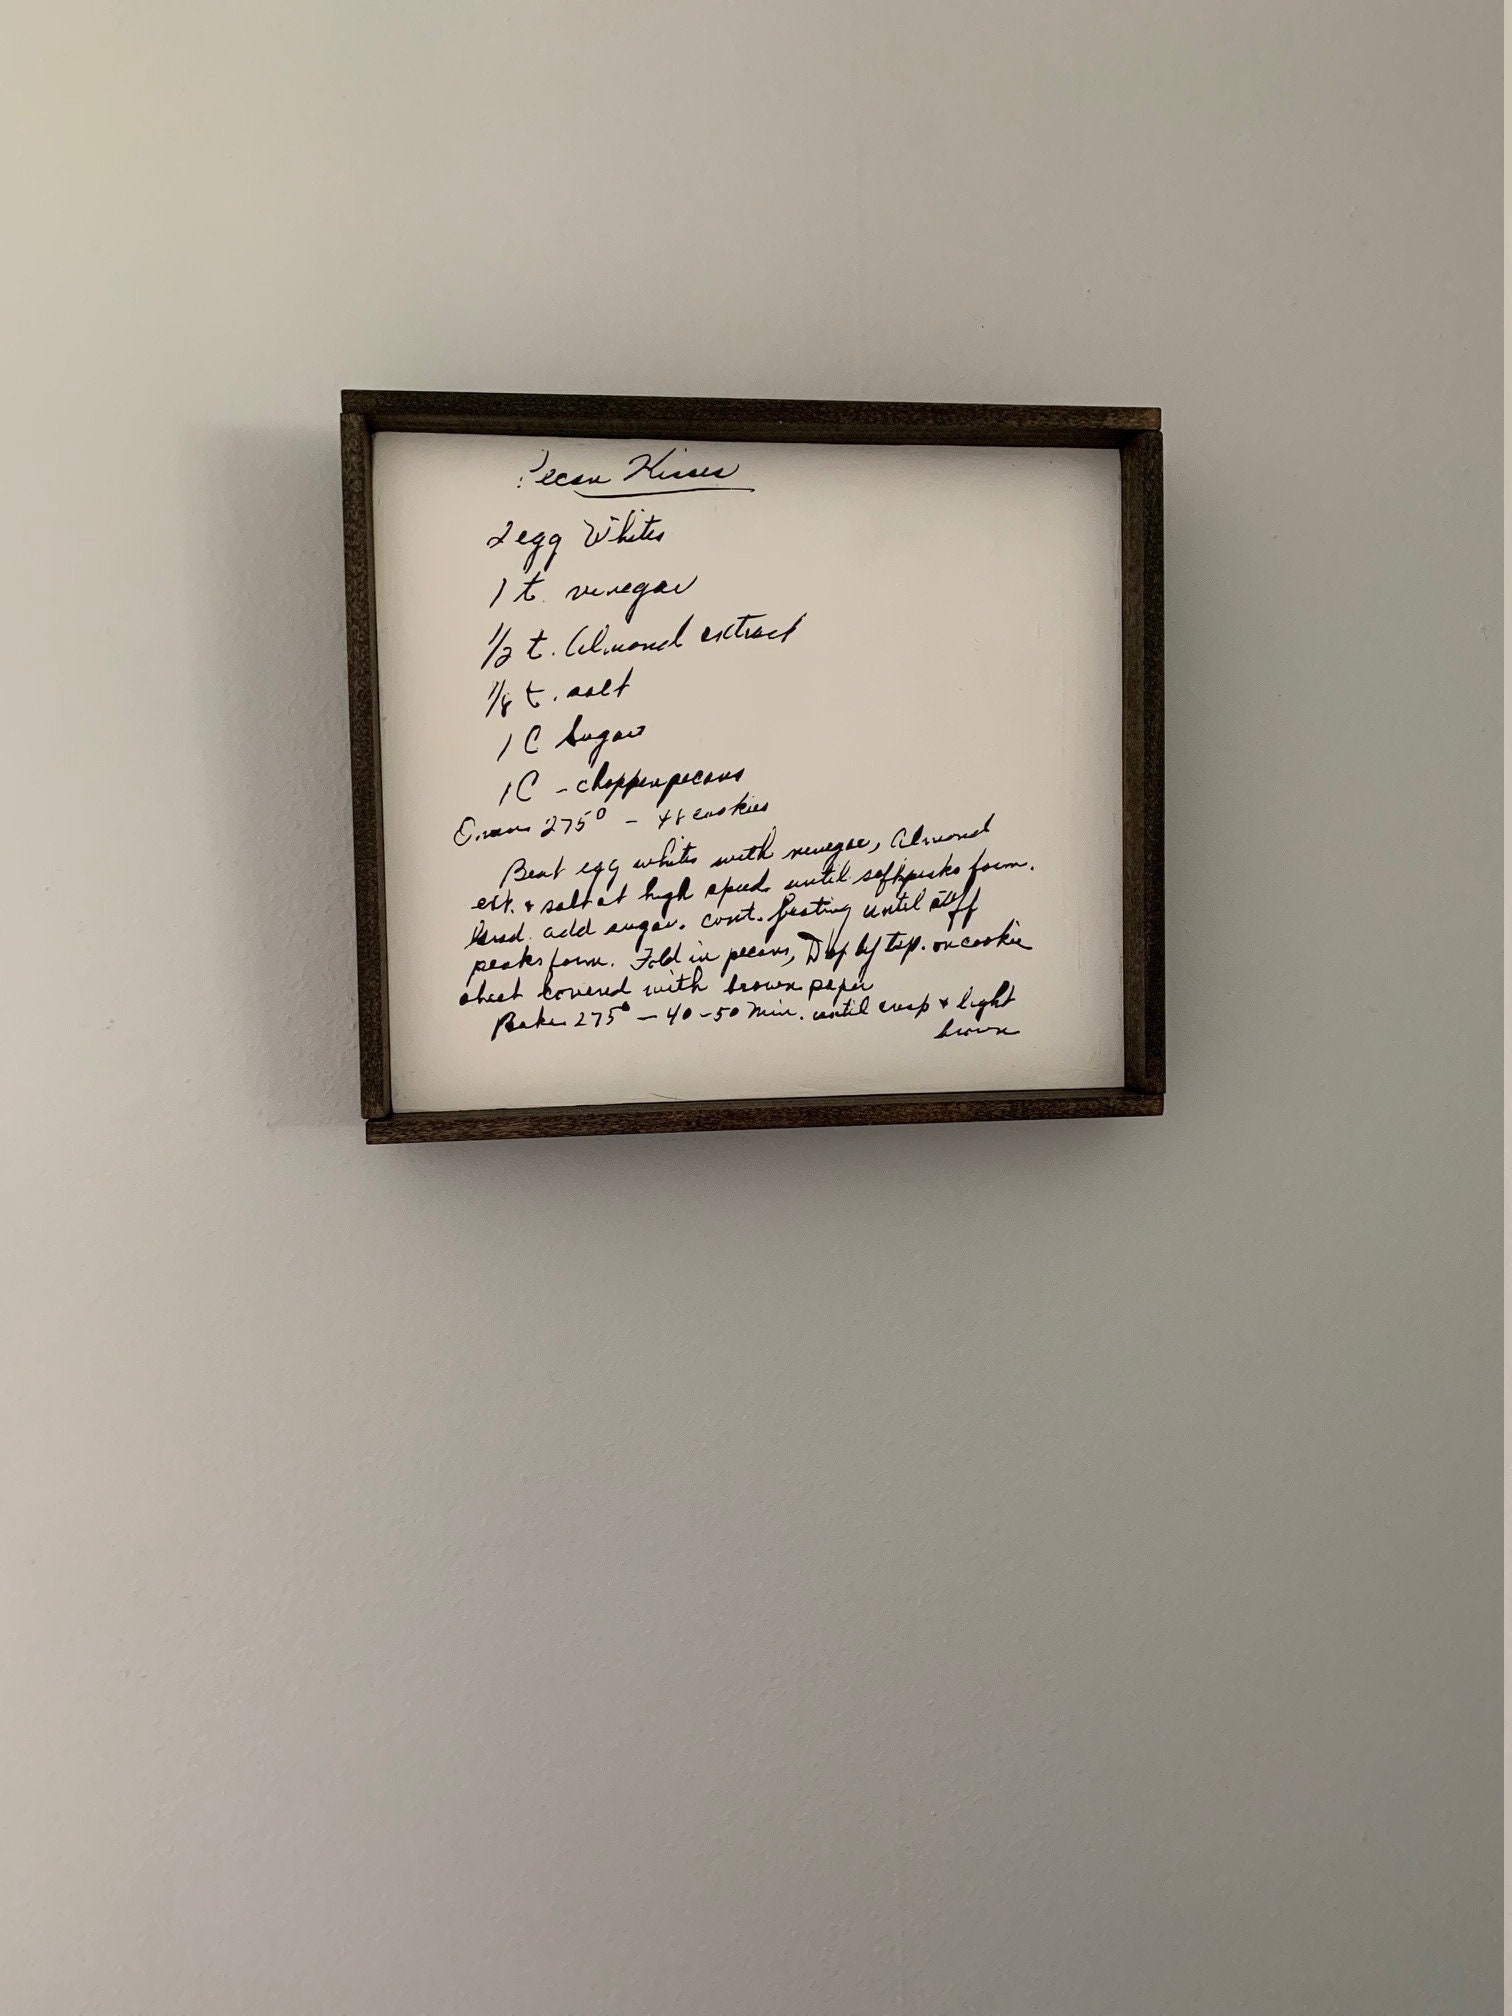 Pecan Kisses
2 egg Whites
1 t. vinegar
1/2 t. Almond extract
1/8 t. salt
1 C Sugar
1 C - choppen pecans
Oven 275° - 48 cookies
Beat egg whites with vinegar, Almond
ext. & salt at high speed until soft peaks form.
add sugar. cont. beating until stiff
peaks form. Fold in pecans, Drop by tsp. on cookie
sheet covered with brown paper
Bake 275° - 40-50 Min. until crisp & light
brown